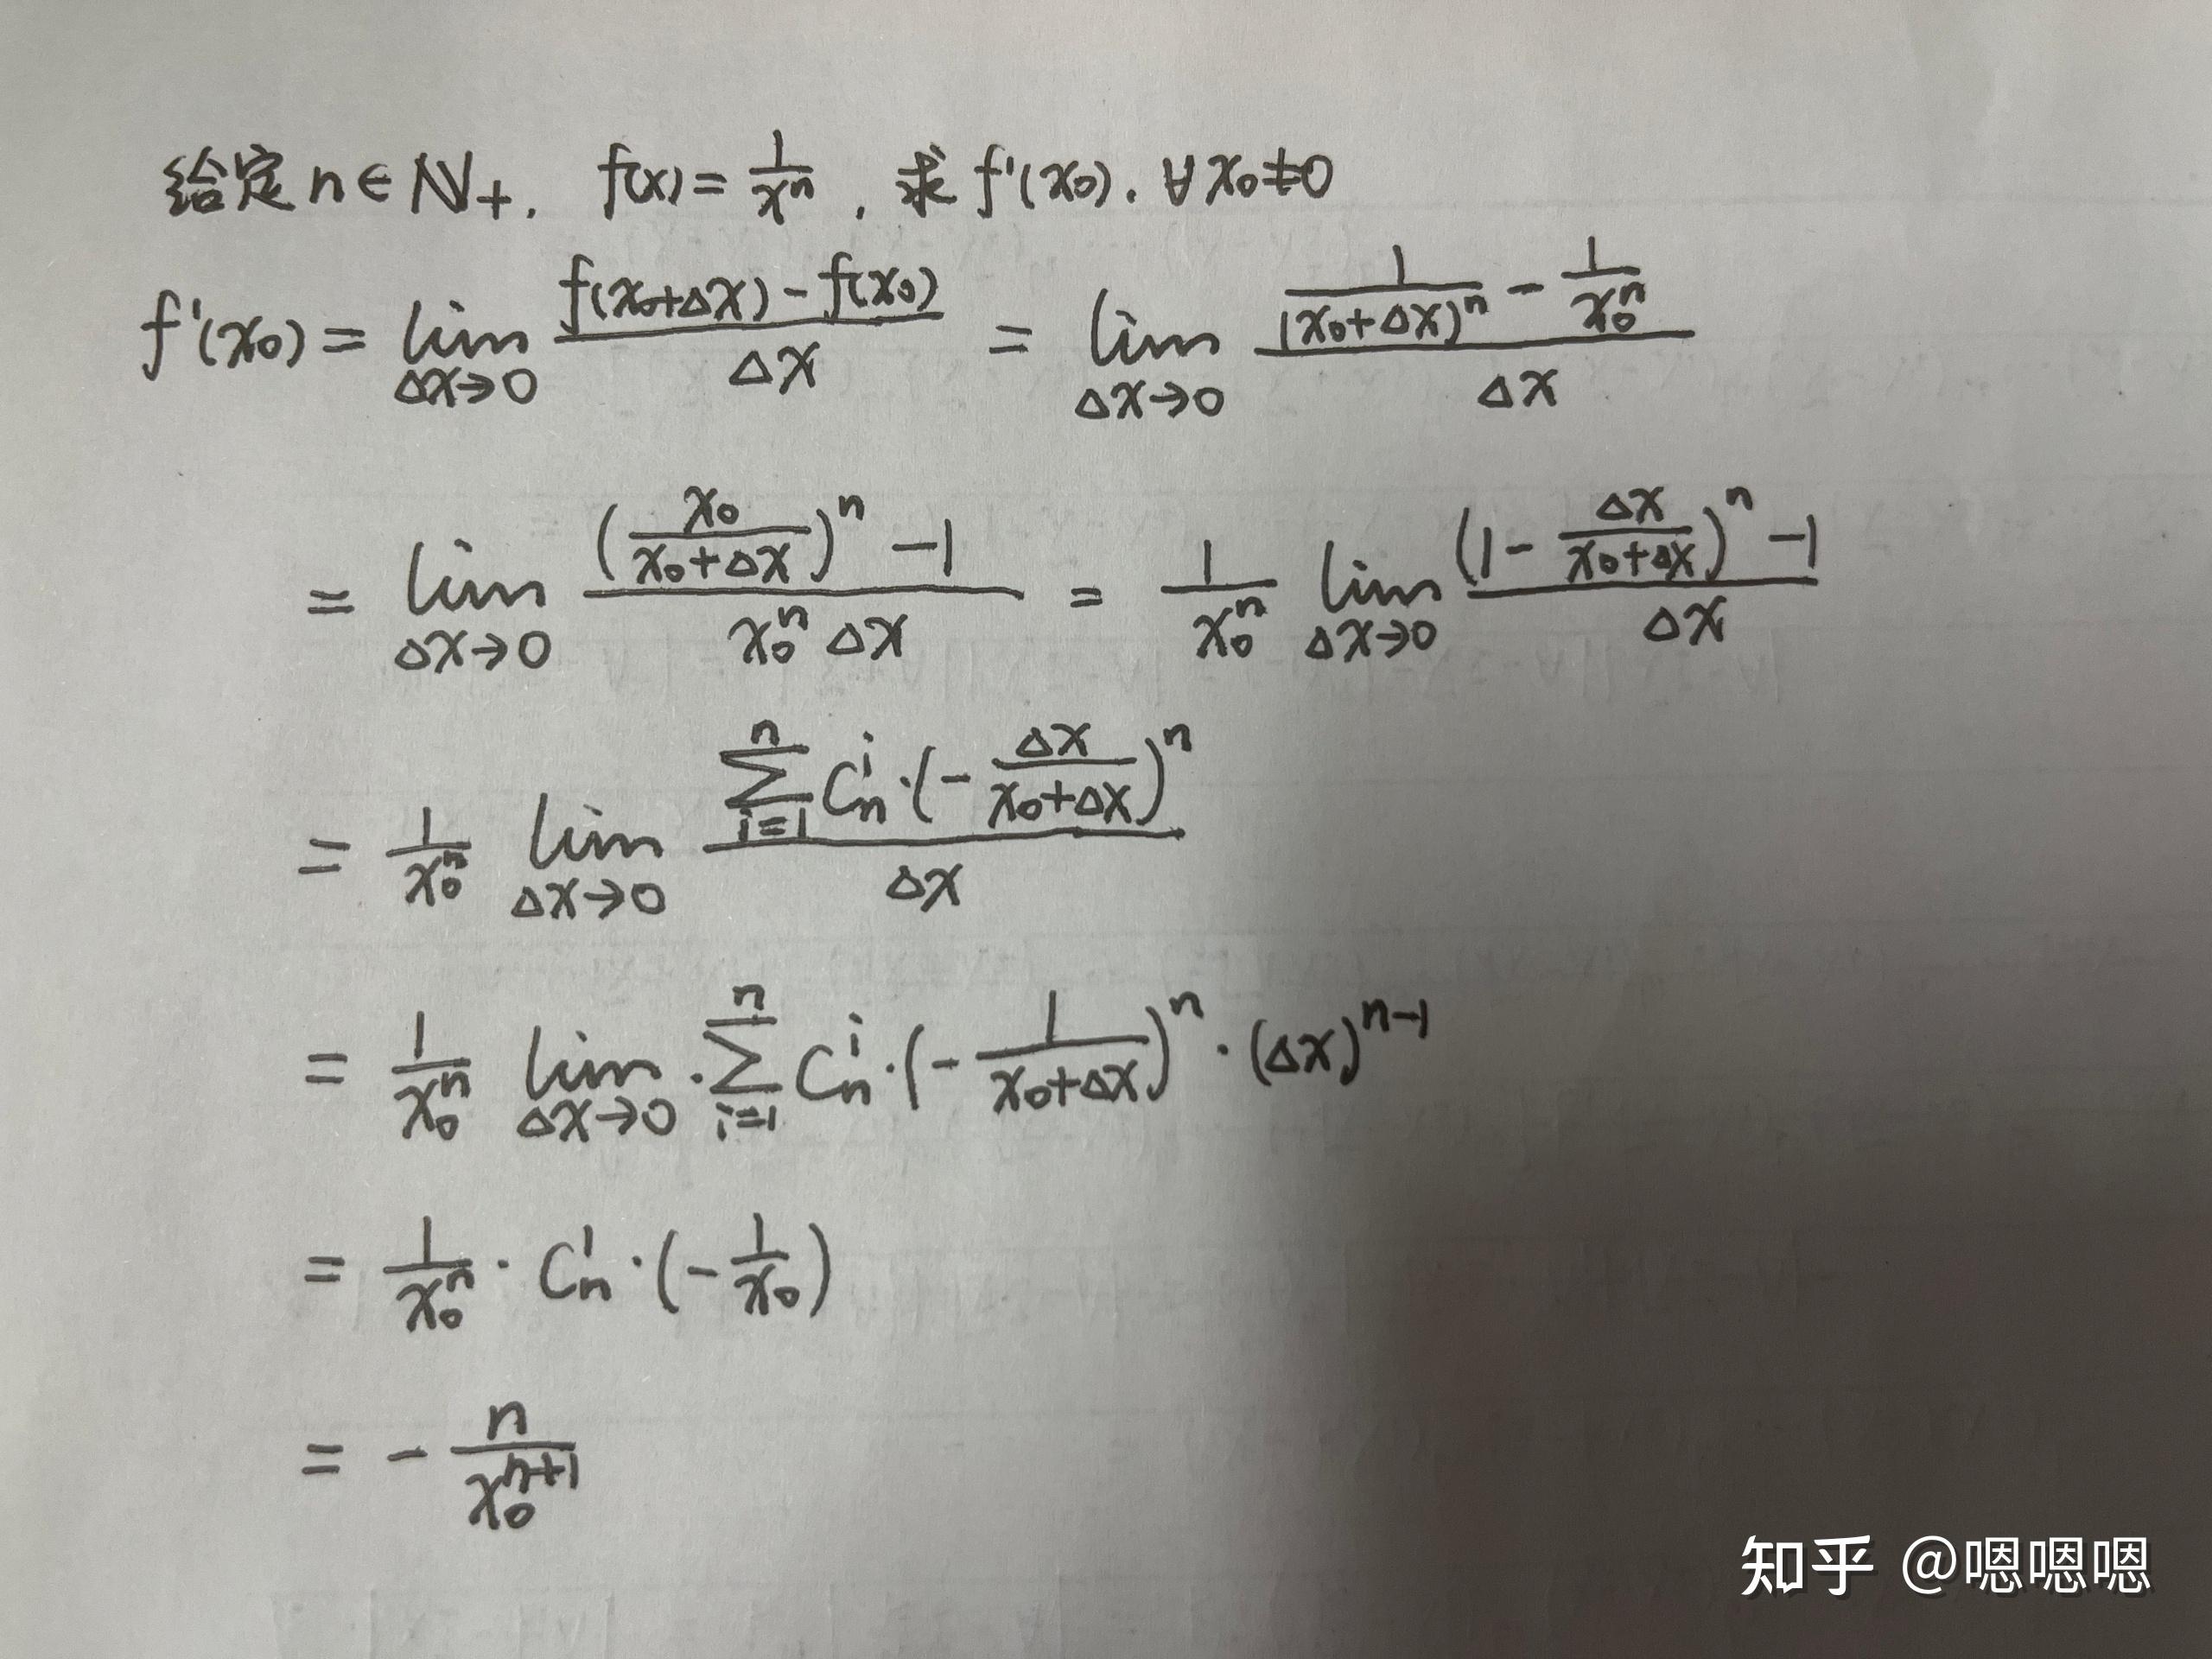 给定 n∈ℕ₊. f(x)=1/xⁿ, 求 f'(x₀). ∀x₀≠0
f'(x₀) = lim_{Δx→0} (f(x₀+Δx)-f(x₀))/Δx = lim_{Δx→0} (1/(x₀+Δx)ⁿ - 1/x₀ⁿ)/Δx
= lim_{Δx→0} ((x₀/(x₀+Δx))ⁿ - 1)/(x₀ⁿ Δx) = 1/x₀ⁿ lim_{Δx→0} ((1 - Δx/(x₀+Δx))ⁿ - 1)/Δx
= 1/x₀ⁿ lim_{Δx→0} (∑_{i=1}^{n} C_n^i·(-Δx/(x₀+Δx))ⁿ)/Δx
= 1/x₀ⁿ lim_{Δx→0} ·∑_{i=1}^{n} C_n^i·(-1/(x₀+Δx))ⁿ·(Δx)ⁿ⁻¹
= 1/x₀ⁿ · C_n^1·(-1/x₀)
= - n/x₀ⁿ⁺¹
知乎 @嗯嗯嗯